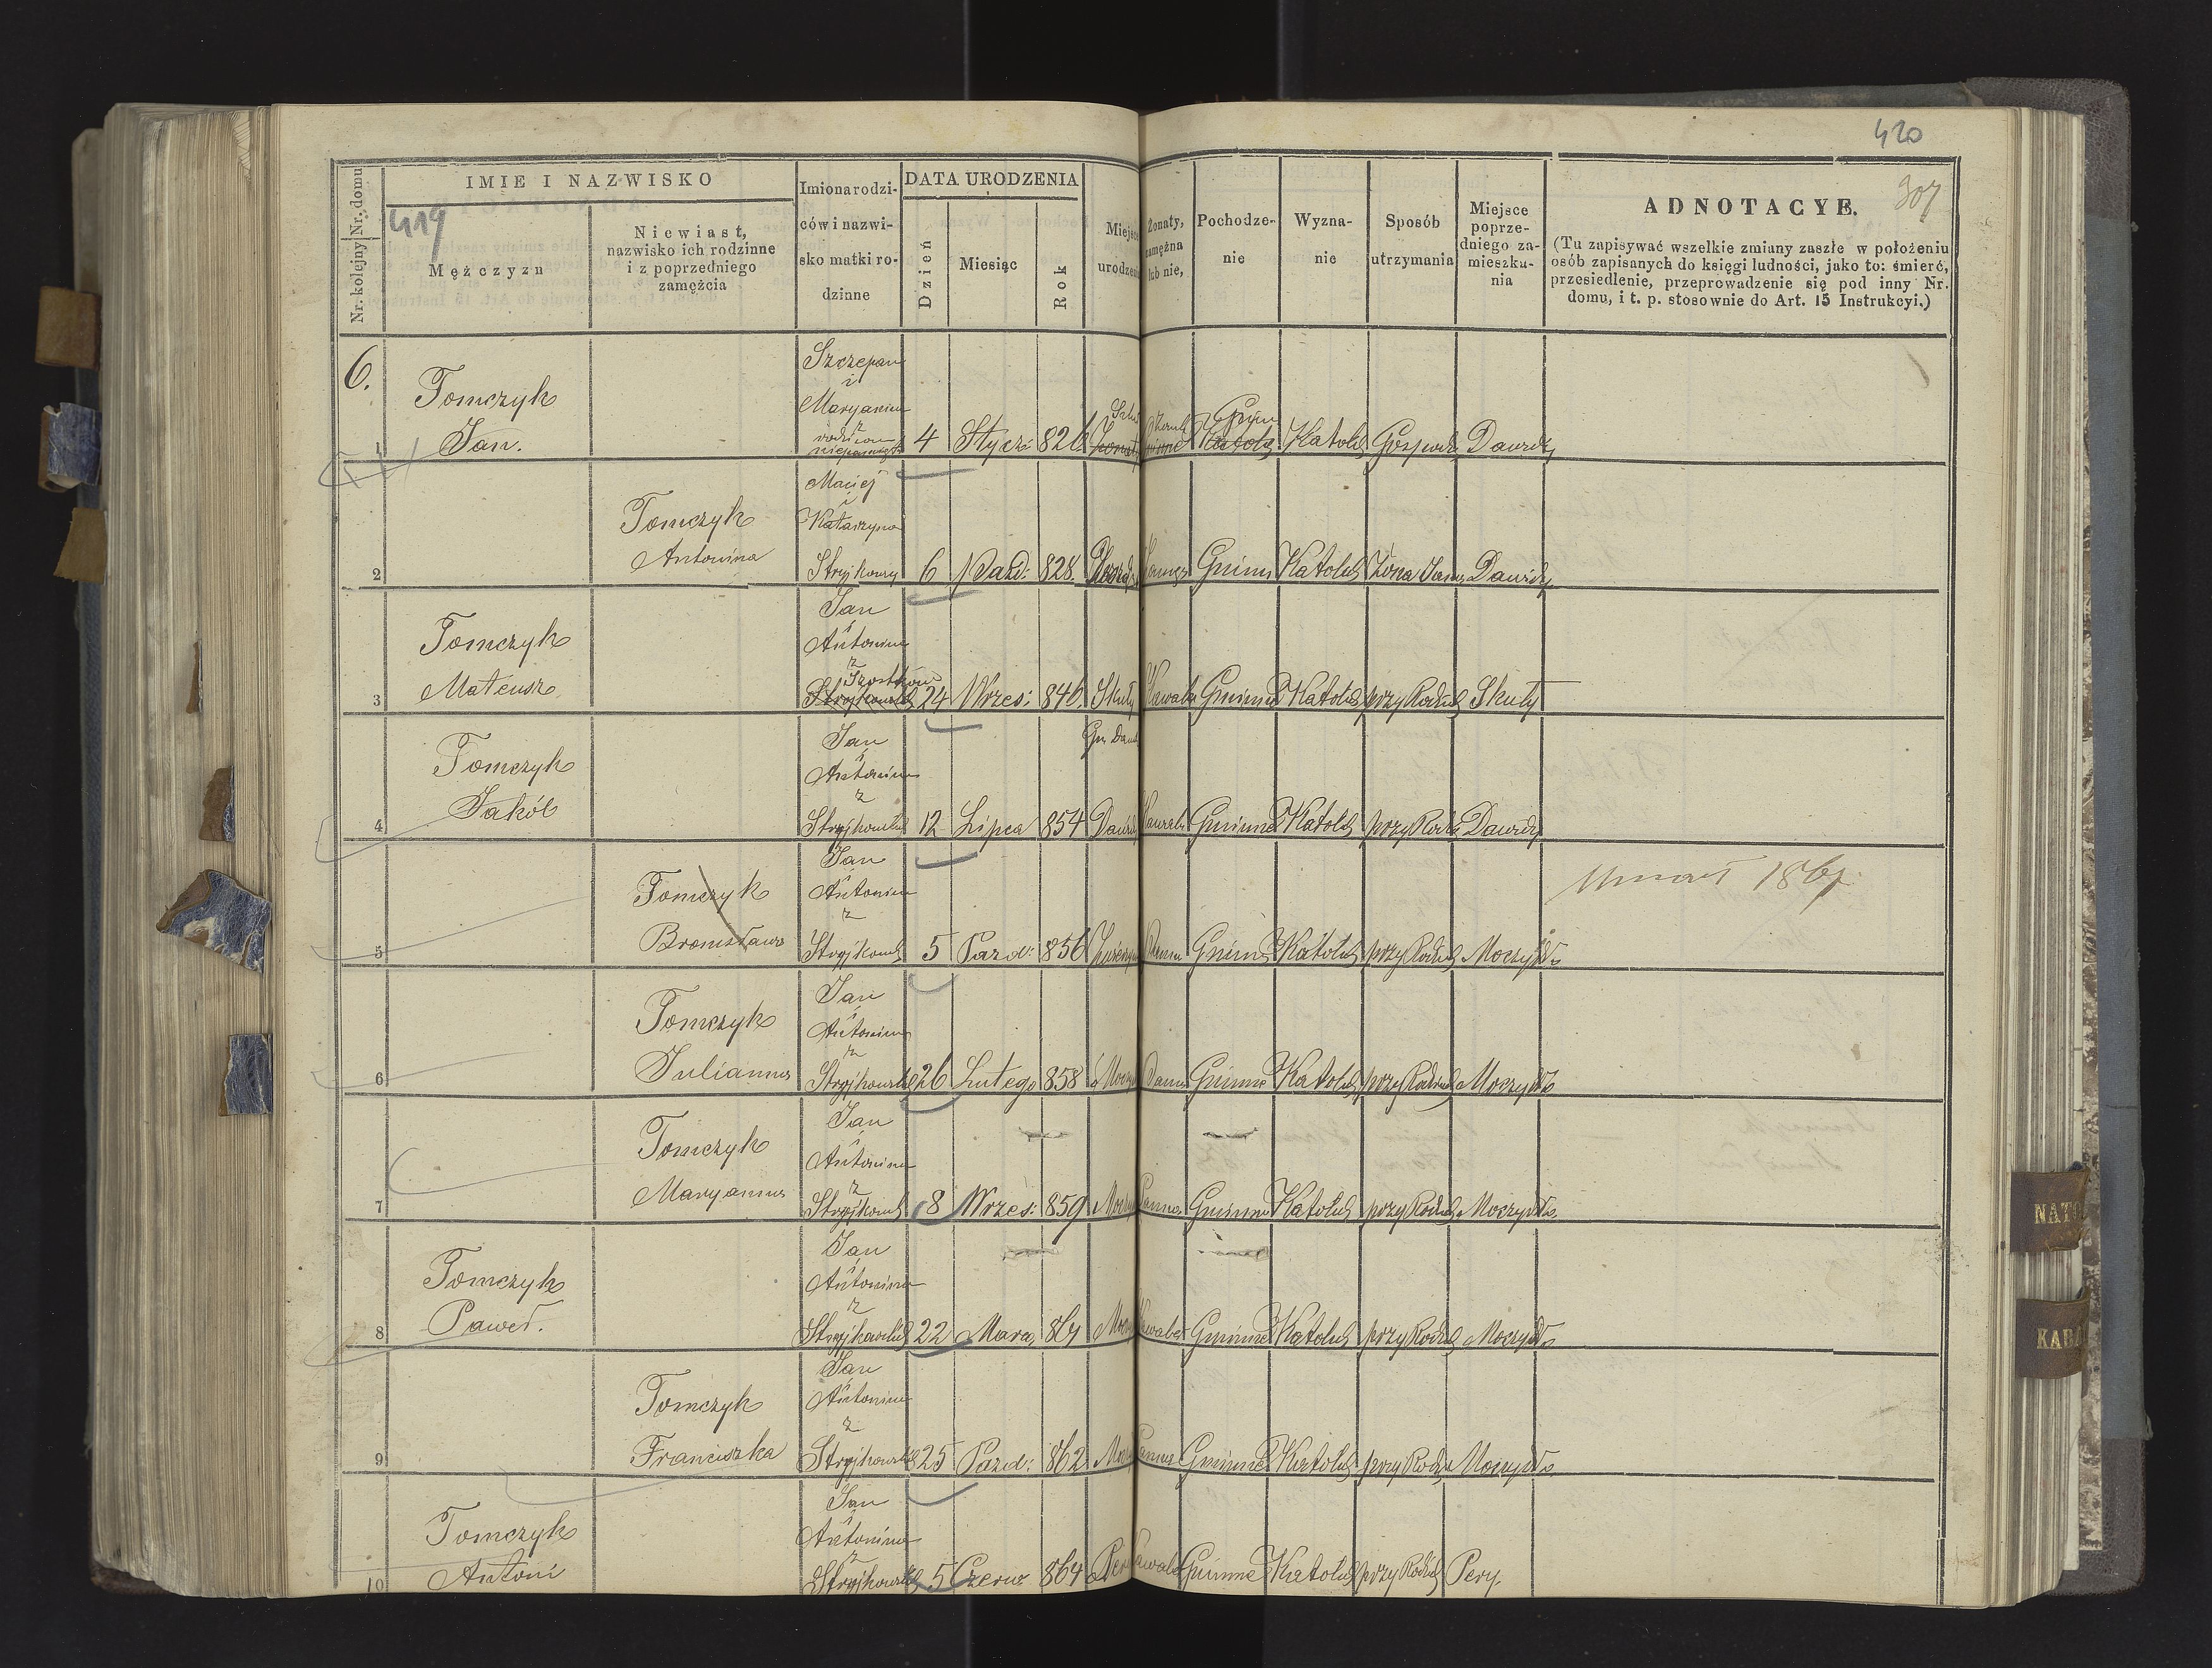 420
307
419
Nr. kolejny
Nr. domu
IMIE I NAZWISKO
Mężczyzn
Niewiast,
nazwisko ich rodzinne
i z poprzedniego
zamężcia
Imiona rodzi-
ców i nazwi-
sko matki ro-
dzinne
DATA URODZENIA
Dzień
Miesiąc
Rok
Miejsce
urodzenia
Żonaty,
zamężna
lub nie,
Pochodze-
nie
Wyzna-
nie
Sposób
utrzymania
Miejsce
poprze-
dniego za-
mieszka-
nia
ADNOTACYE.
(Tu zapisywać wszelkie zmiany zaszłe w położeniu
osób zapisanych do księgi ludności, jako to: śmierć,
przesiedlenie, przeprowadzenie się pod inny Nr.
domu, i t. p. stosownie do Art. 15 Instrukcyi.)
6.
1
Tomczyk
Jan.
Szczepan
i
Maryanna
z
4 Stycz: 826
Katol: Gospod: Dawidy
2
Tomczyk
Antonina
Maciej
i
Katarzyna
6 Paźd: 828.
Gminn Katol: Żona Jana Dawidy
3
Tomczyk
Mateusz
Jan
i
Antonina
z
24 Wrześ: 846. Skuły
Kawaler Gminne Katol: przy Rodzic Skuły
4
Tomczyk
Jakób
Jan
i
Antonina
z
Stryjkowskich 12 Lipca 854 Dawidy
Kawaler Gminne Katol: przy Rodz: Dawidy
5
Tomczyk
Bronisława
Jan
i
Antonina
z
Stryjkowsk 5 Pazd: 856
Panna Gminne Katol: przy Rodzic Moczydło
Umarł 1867
6
Tomczyk
Julianna
Jan
i
Antonina
z
Stryjkowskich 26 Lutego 858 Moczy
Panna Gminne Katol: przy Rodzic Moczydło
7
Tomczyk
Maryanna
Jan
i
Antonina
z
Stryjkowsk 8 Wrześ: 859 Moczy
Panna Gminne Katol: przy Rodzic Moczydło
8
Tomczyk
Paweł.
Jan
i
Antonina
z
Stryjkowskich 22 Marca 861 Mocz
Kawaler Gminne Katol: przy Rodzic Moczydło
9
Tomczyk
Franciszka
Jan
i
Antonina
z
Stryjkowskich 25 Pazd: 862 Mocz
Panna Gminne Katol: przy Rodzic Moczydło
10
Tomczyk
Antoni
Jan
i
Antonina
z
Stryjkowskich 5 Czerw: 864 Pery
Kawaler Gminne Katol: przy Rodzic Pery.
NATO
KABA